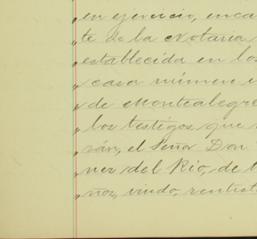 en ejercicio, enca
te de la Notaria
establecida en los
casa número
de Montealegre
los testigos que
rán, el Señor Don
ner del Rio, de
ños, viudo, rentist